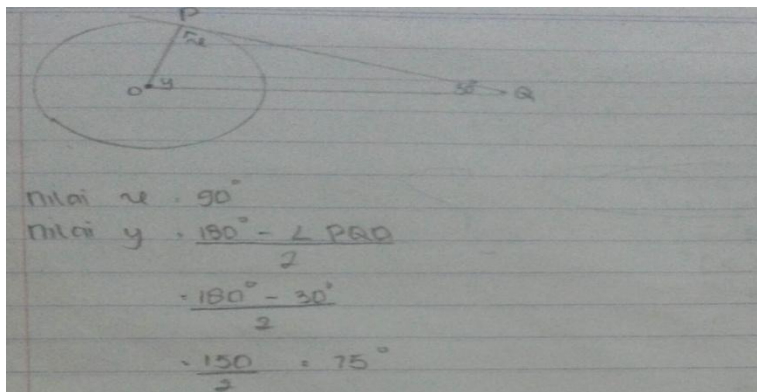 P
x
O y 30° Q
nilai x = 90°
nilai y = 180° - ∠ PQO
2
= 180° - 30°
2
= 150 = 75°
2